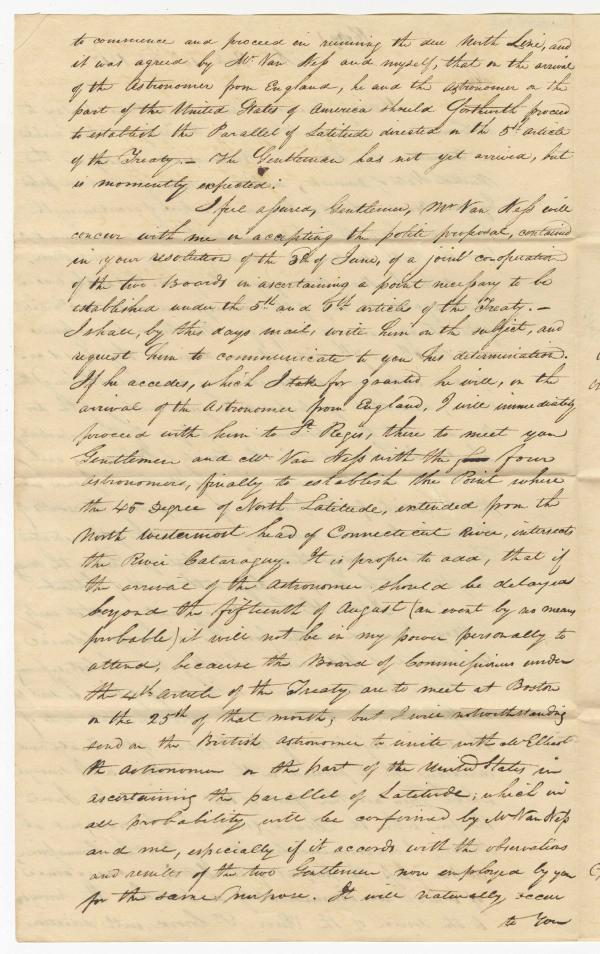 to commence and proceed on running the due North Line, and
it was agreed by Mr Van Ness and myself, that on the arrival
of the Astronomer from England, he and the Astronomer on the
part of the United States of America should forthwith proceed
to establish the Parallel of Latitude directed in the 5th article
of the Treaty.— The Gentleman has not yet arrived, but
is momently expected.
I feel assured, Gentlemen, Mr Van Ness will
concur with me in accepting the polite proposal, contained
in your resolution of the 3d of June, of a joint cooperation
of the two Boards in ascertaining a point necessary to be
established under the 5th and 6th articles of the Treaty.—
I shall, by this days mail, write him on the subject, and
request him to communicate to you his determination.
If he accedes, which I take for granted he will, on the
arrival of the Astronomer from England, I will immediately
proceed with him to St Regis, there to meet you
Gentlemen and Mr Van Ness with the four
astronomers, finally to establish the Point where
the 45 Degree of North Latitude, extended from the
North Westernmost head of Connecticut River, intersects
the River Cataraguy. It is proper to add, that if
the arrival of the Astronomer should be delayed
beyond the fifteenth of August (an event by no means
probable) it will not be in my power personally to
attend, because the Board of Commissioners under
the 4th Article of the Treaty are to meet at Boston
on the 25th of that month; but I will notwithstanding
send on the British Astronomer to unite with Mr Elliot
the Astronomer on the part of the United States in
ascertaining the parallel of Latitude; which in
all probability will be confirmed by Mr Van Ness
and me, especially if it accords with the observations
and results of the two Gentlemen now employed by you
for the same purpose. It will naturally occur
to You